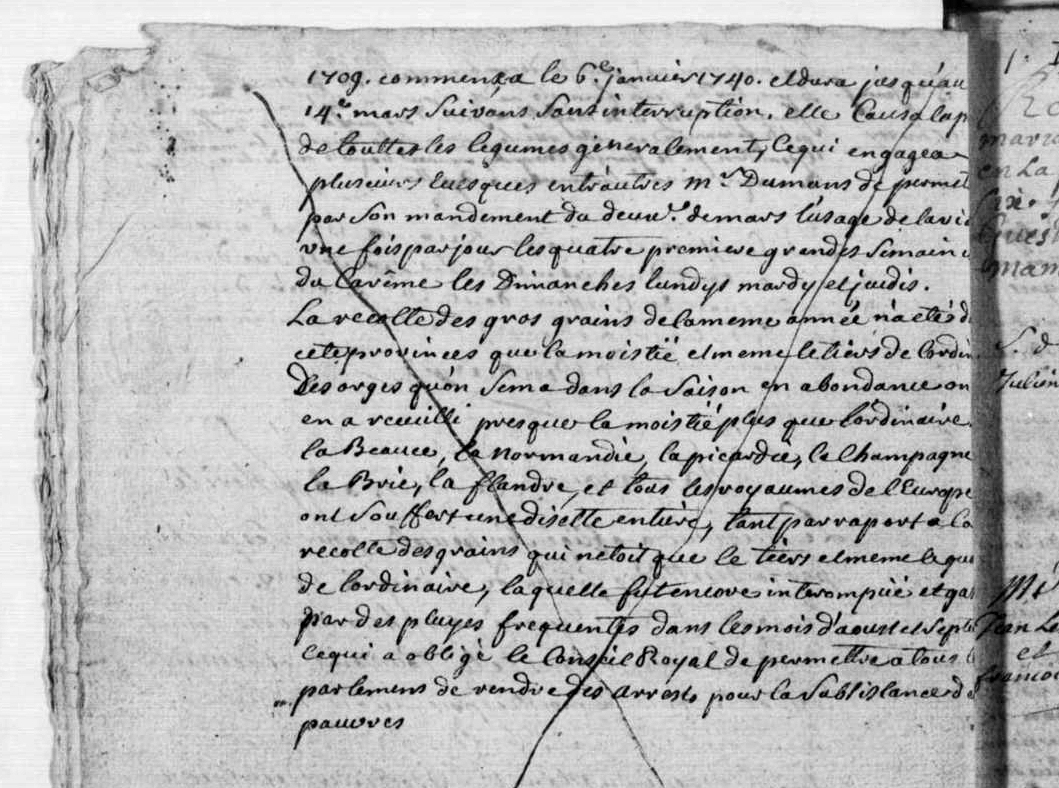 1709. commença le 6.e janvier 1740. et dura jusqu'au
14.e mars suivans sans interruption. elle causa la p
de touttes les legumes generalement, ce qui engagea
plusieurs Evesques entr'autres Mr. Dumans de permet
par son mandement du deuxe. de mars l'usage de la vi
une fois par jour les quatre premiere grandes semaine
du Carême les Dimanches lundys mardy et jeudis.
La recolte des gros grains de la meme année n'a etés d
cete provinces que la moistié et meme le tiers de l'ordin
Des orges qu'on sema dans la saison en abondance on
en a receuilli presque la moistié plus que l'ordinaire.
la Beauce, la normandie, la picardie, le Champagne
la Brie, la flandre, et tous les royaumes de l'Europe
ont souffert une disette entiere, tant par raport a la
recolte des grains qui netoit que le tiers et meme le qua
de l'ordinaire, laquelle fut encore interompüe et ga
par des pluyes frequentes dans les mois d'aoust et septe
ce qui a obligé le Conseil Royal de permettre a tous l
parlemens de rendre des arrests pour la subsistance de
pauvres
en La
Julien
Mr
Jean Le
et
francoi